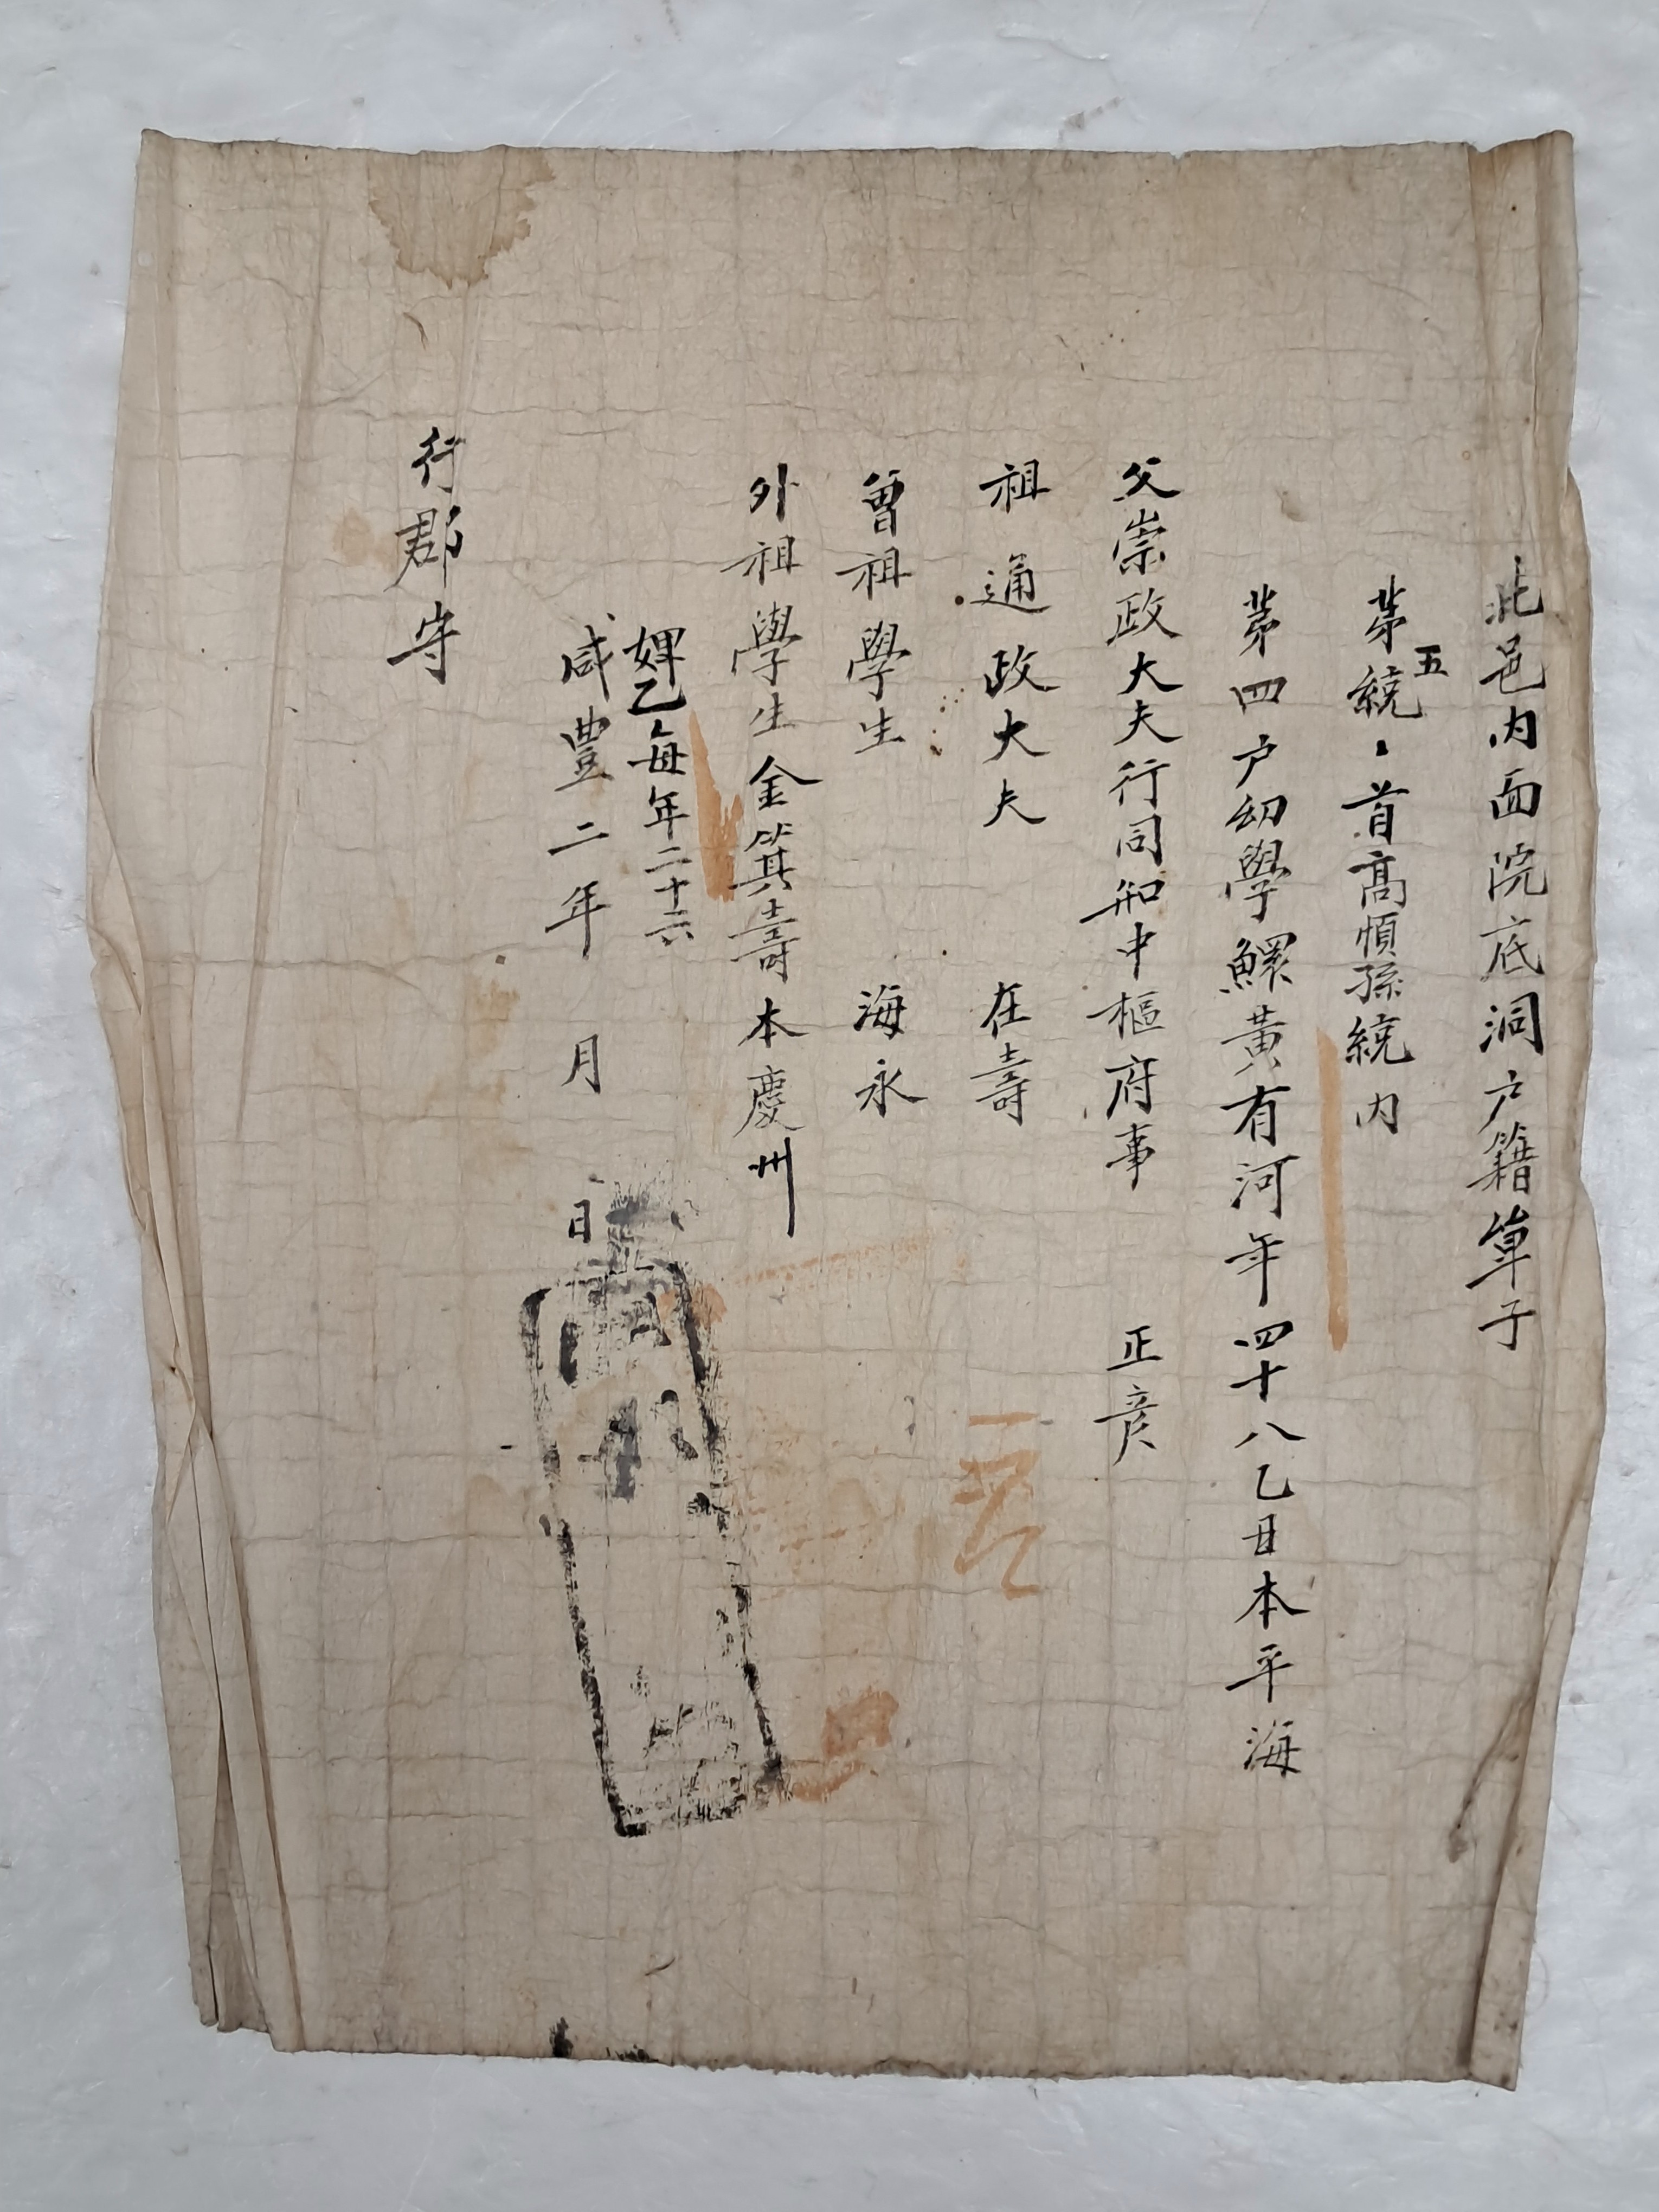 此邑内面院底洞户籍單子
苐五統〻首高順孫統内
苐四户幼學鰥黃有河年四十八乙丑本平海
父崇政大夫行同知中樞府事 正彦
祖通政大夫 在壽
曾祖學生 海永
外祖學生金箕壽本慶州
婢乙每年二十六
咸豊二年 月 日
行郡守